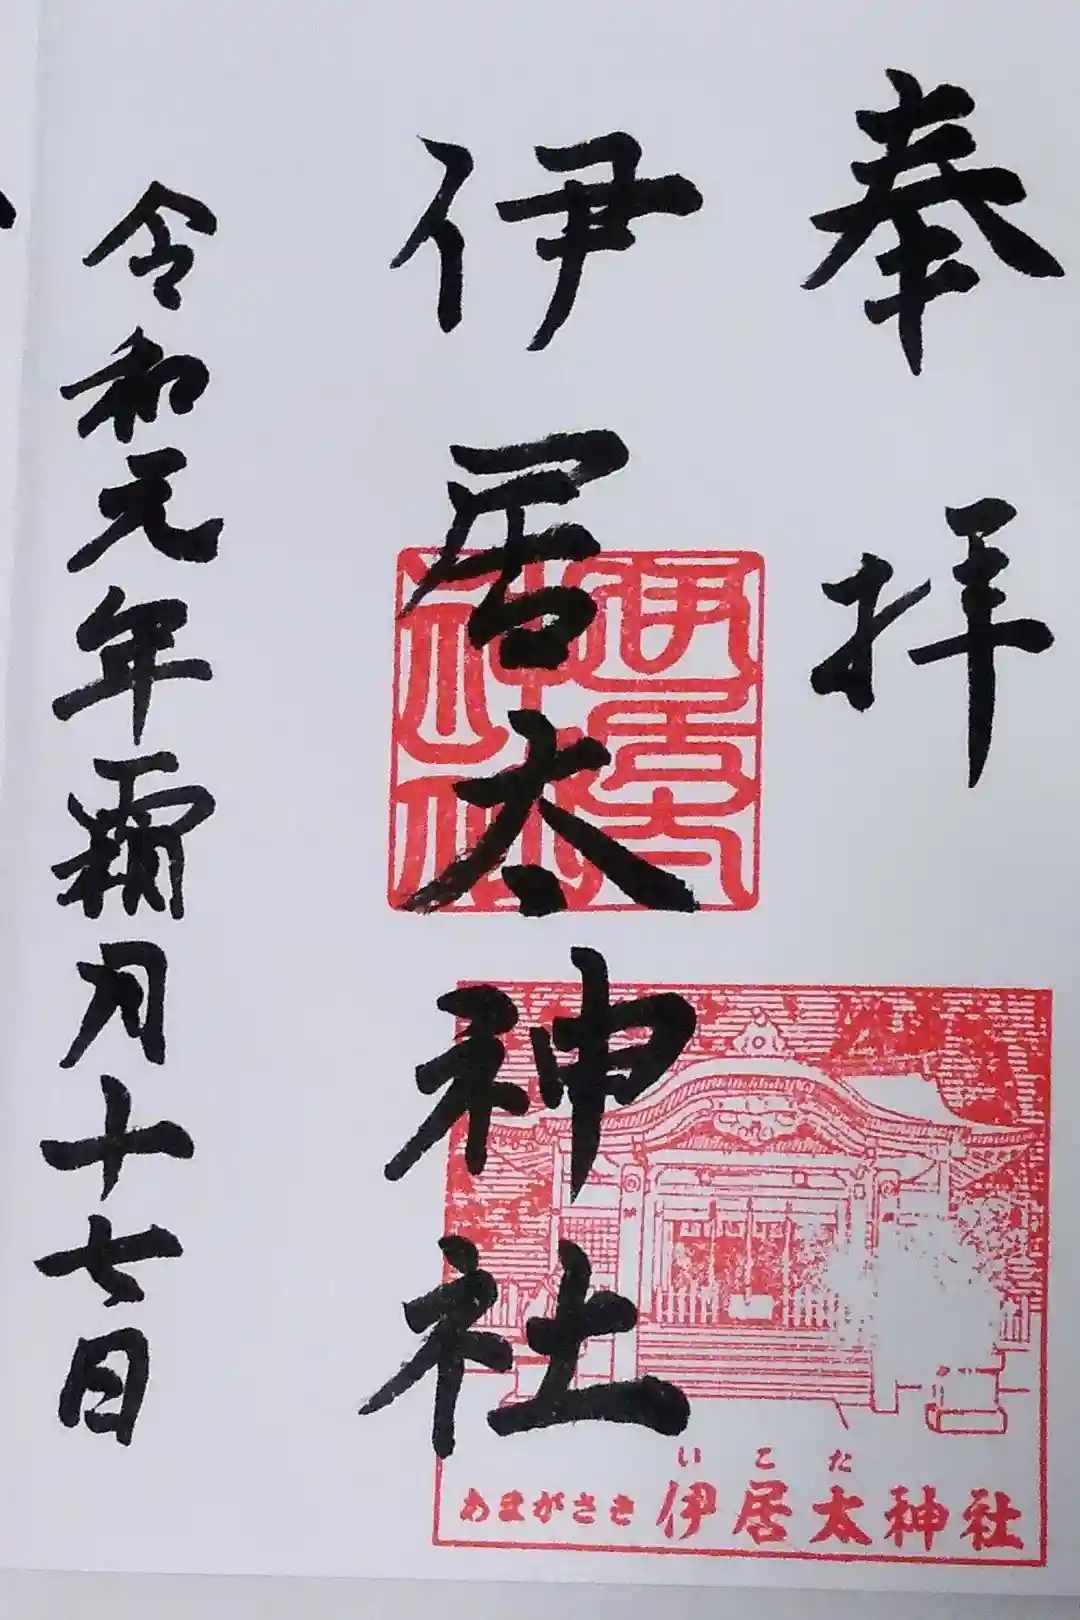 奉拝
伊居太神社
令和元年霜月十七日
伊居太
神社
いこた
あまがさき 伊居太神社